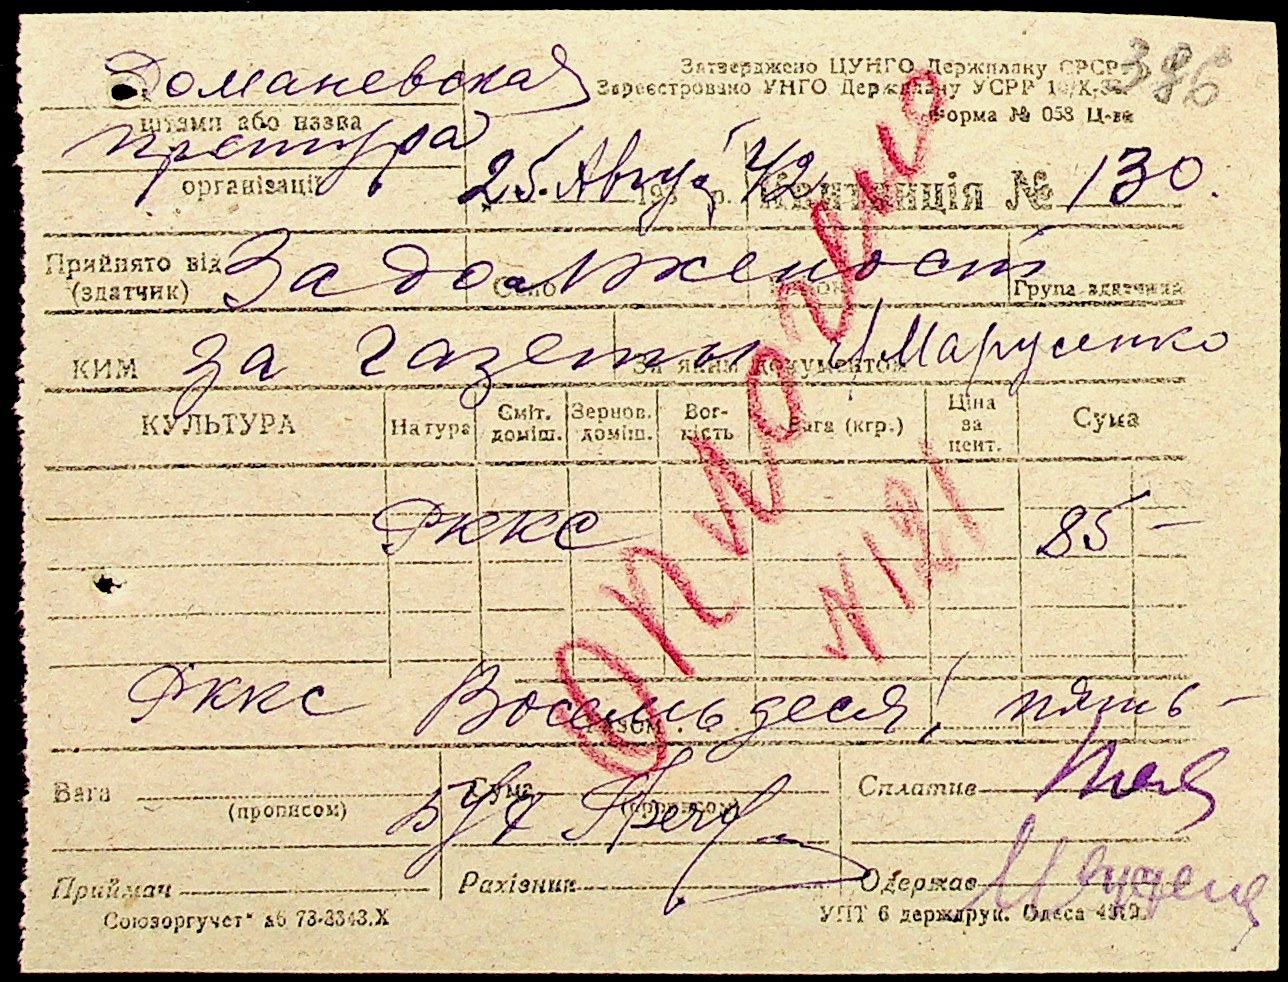 Домaневская
штамп або назва
претура
організації
Затверджено ЦУНГО Держплану СРСР
Зареєстровано УНГО Держплану УСРР
Форма № 058 Ц-ва
386
25 Авгус 42
193 р.
Квитанція № 130.
Прийнято від
(здатчик)
Задолженост
Село
Район
Група здатчика
КИМ за газеты Марусенко
За яким документом
КУЛЬТУРА Натура Сміт. доміш. Зернов. доміш. Вог-кість Вага (кгр.) Ціна за цент. Сума
РККС 85 —
Оплочено
N 121
РККС Восемьдесят пять —
Разом
Вага (прописом) Сума (прописом) Сплатив
Бух
Приймач Рахівник Одержав
Союзоргучет" об 73-3343.X УПТ 6 держдрук. Одеса